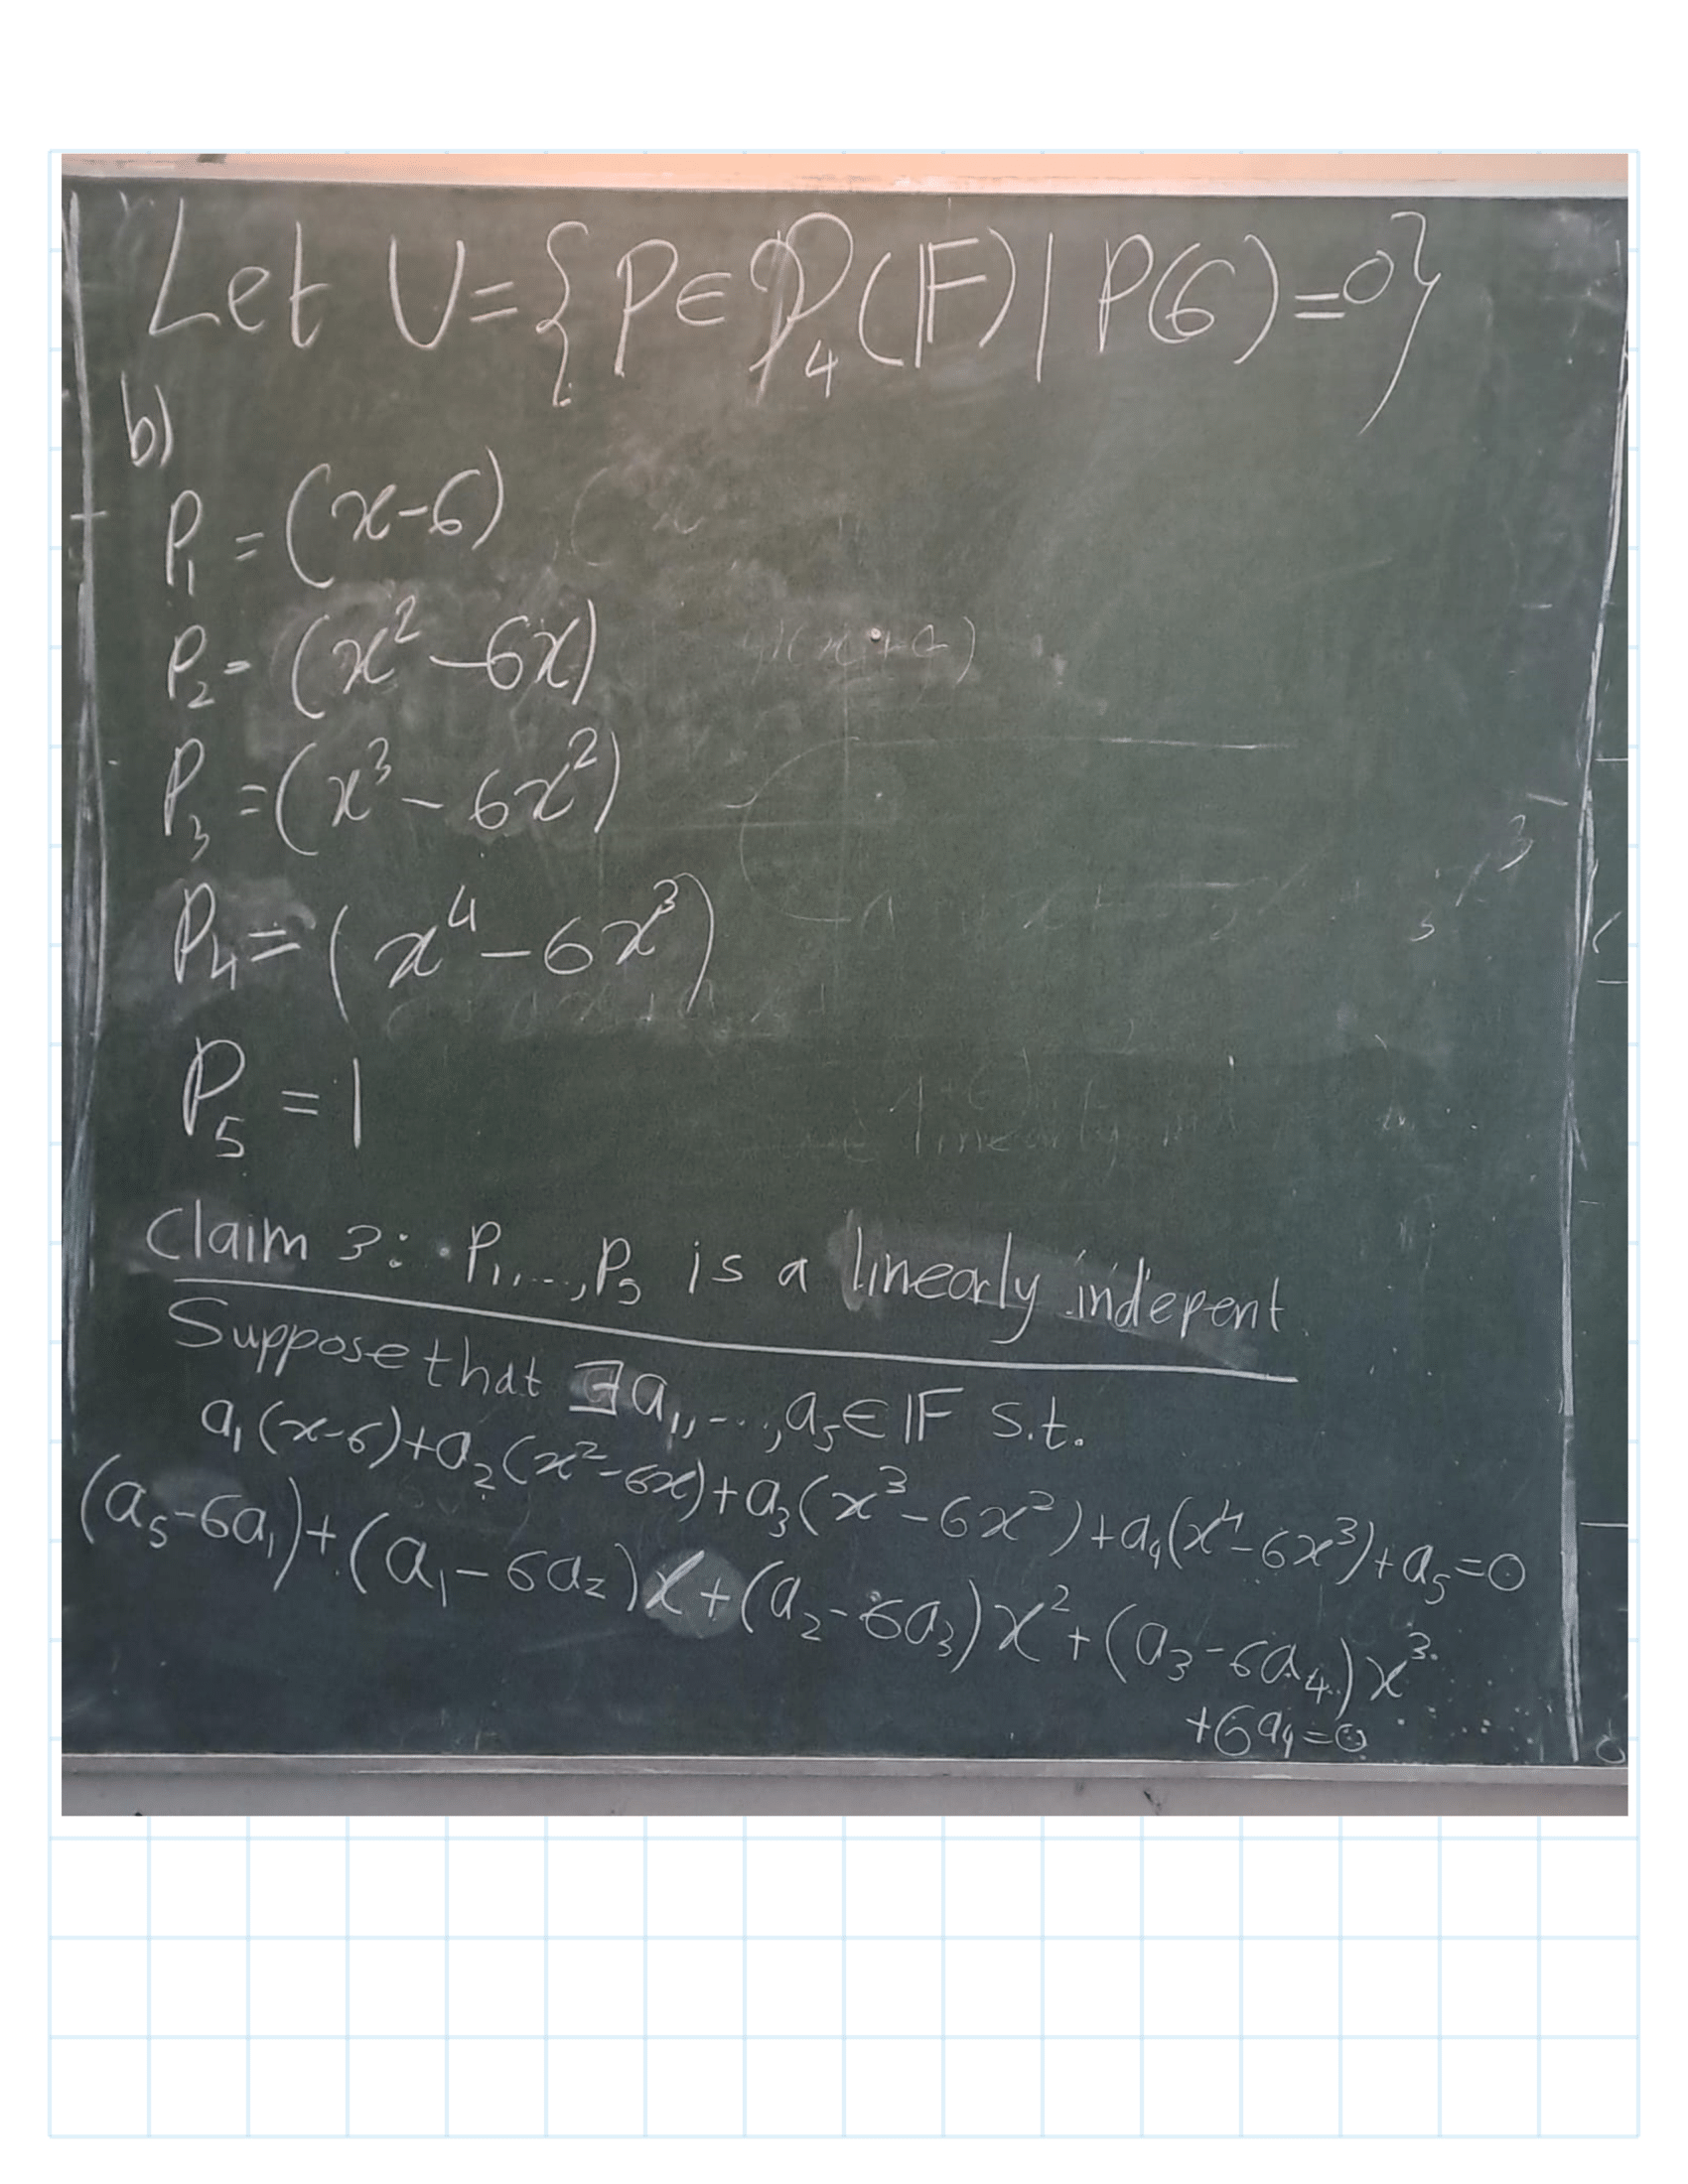 Let U={P∈𝒫₄(𝔽)|P(6)=0}
b)
P₁=(x-6)
P₂=(x²-6x)
P₃=(x³-6x²)
P₄=(x⁴-6x³)
P₅=1
Claim 3: P₁,...,P₅ is a linearly indepent
Suppose that ∃a₁,...,a₅∈𝔽 s.t.
a₁(x-6)+a₂(x²-6x)+a₃(x³-6x²)+a₄(x⁴-6x³)+a₅=0
(a₅-6a₁)+(a₁-6a₂)x+(a₂-6a₃)x²+(a₃-6a₄)x³
+6a₄=0